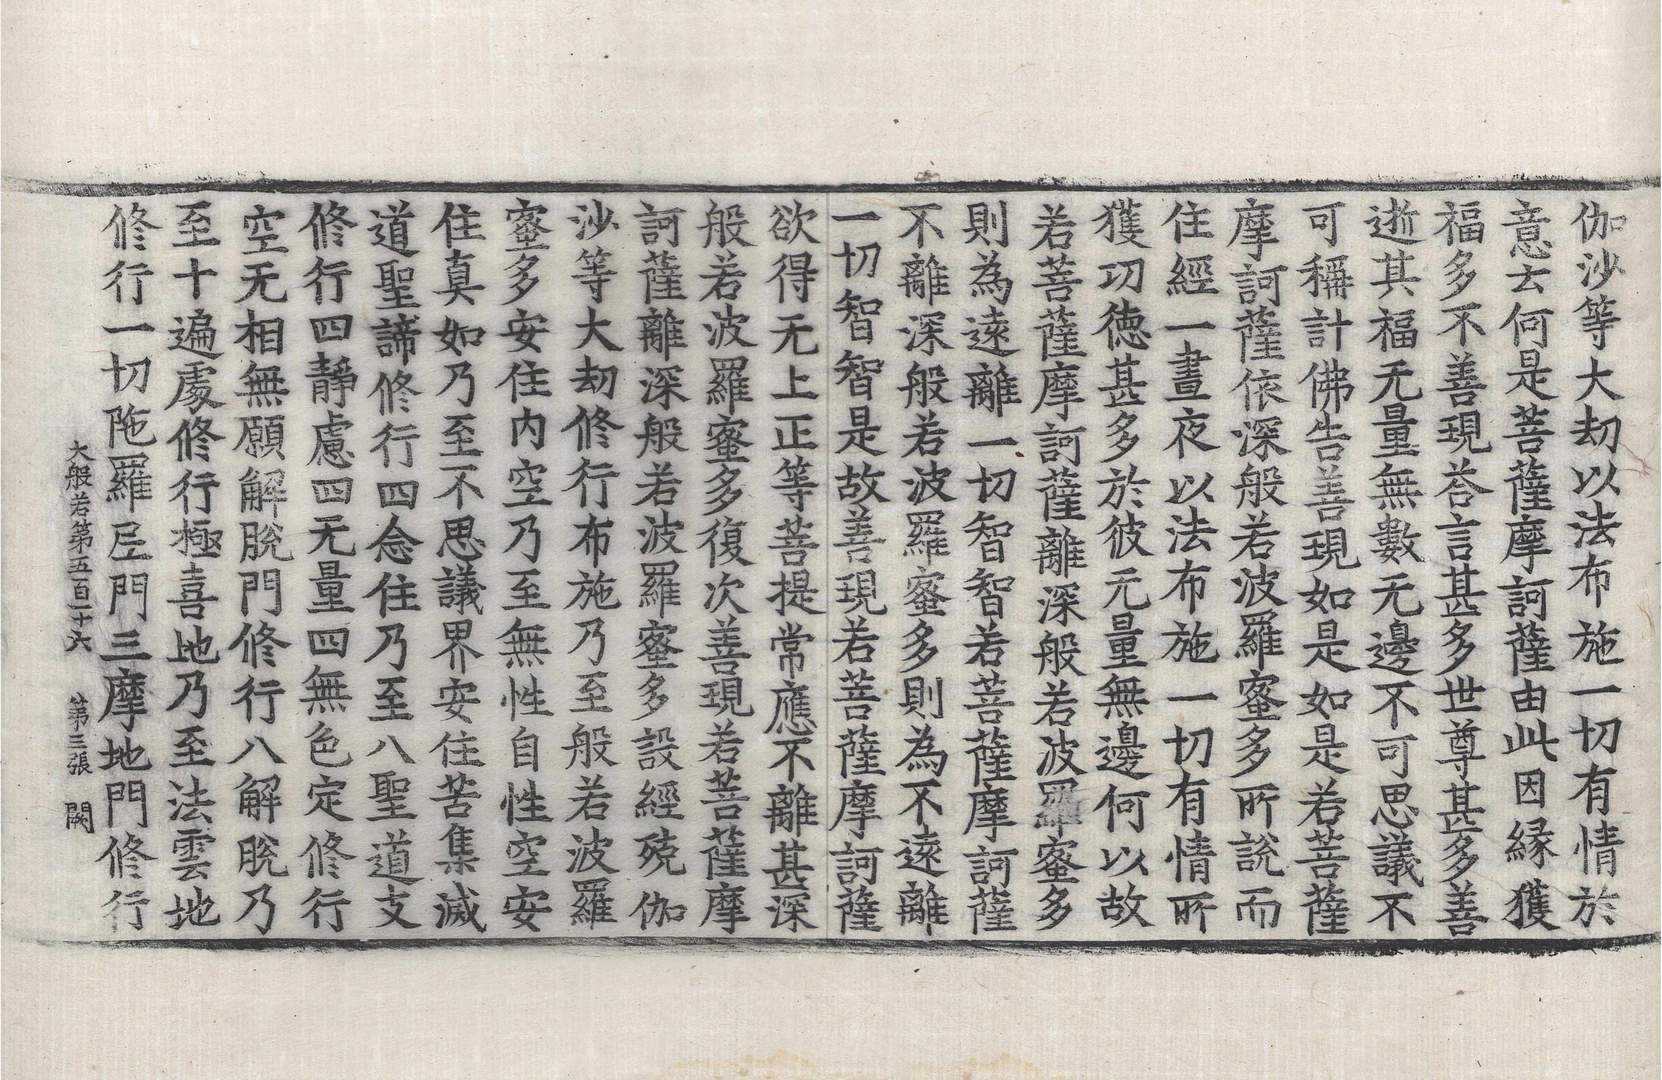 伽沙等大劫以法布施一切有情於
意云何是菩薩摩訶薩由此因緣獲
福多不善現荅言甚多世尊甚多善
逝其福无量無數无邊不可思議不
可稱計佛告善現如是如是若菩薩
摩訶薩依深般若波羅蜜多所說而
住經一晝夜以法布施一切有情所
獲功德甚多於彼无量無邊何以故
若菩薩摩訶薩離深般若波羅蜜多
則為遠離一切智智若菩薩摩訶薩
不離深般若波羅蜜多則為不遠離
一切智智是故善現若菩薩摩訶薩
欲得无上正等菩提常應不離甚深
般若波羅蜜多復次善現若菩薩摩
訶薩離深般若波羅蜜多設經殑伽
沙等大劫修行布施乃至般若波羅
蜜多安住內空乃至無性自性空安
住真如乃至不思議界安住苦集滅
道聖諦修行四念住乃至八聖道支
修行四靜慮四无量四無色定修行
空无相無願解脫門修行八解脫乃
至十遍處修行極喜地乃至法雲地
修行一切陁羅尼門三摩地門修行
大般若第五百十六 第三張 闕